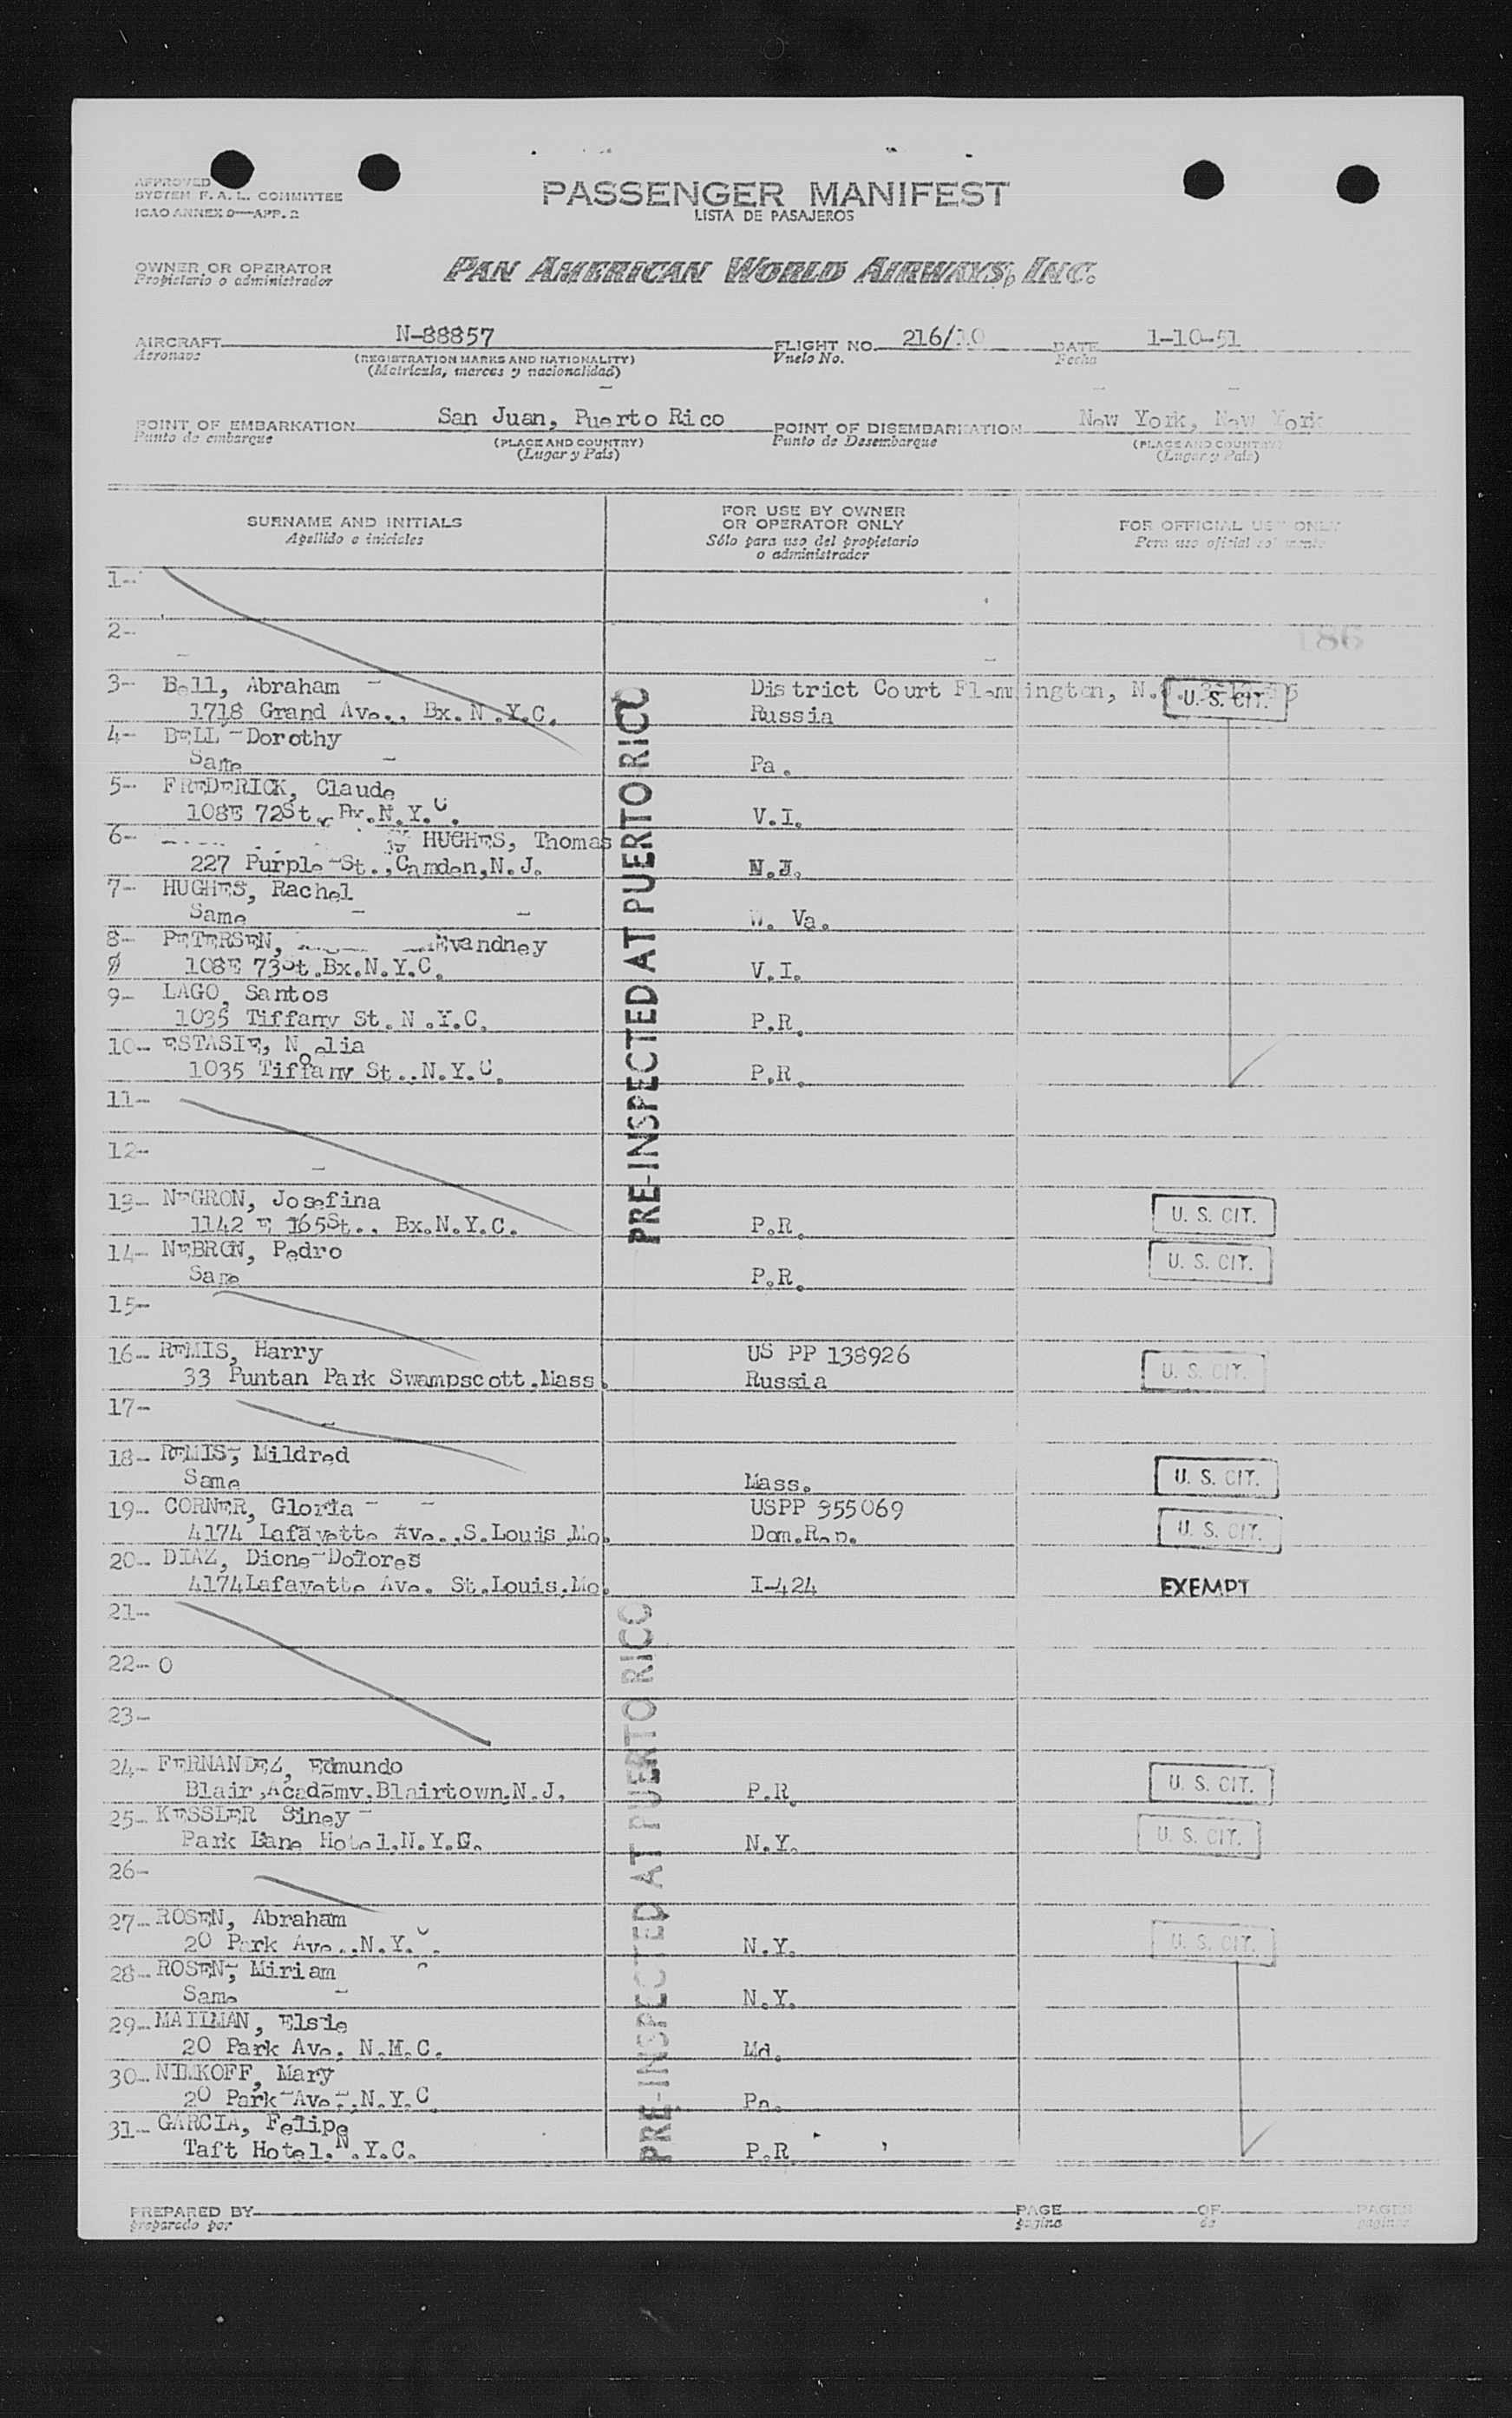 APPROVED
SYSTEM F. A. L. COMMITTEE
ICAO ANNEX 9—APP. 2
PASSENGER MANIFEST
LISTA DE PASAJEROS
OWNER OR OPERATOR
Propietario o administrador
PAN AMERICAN WORLD AIRWAYS, INC.
AIRCRAFT N-88857 FLIGHT NO. 216/10 DATE 1-10-51
Aeronave (REGISTRATION MARKS AND NATIONALITY) Vuelo No. Fecha
(Matrícula, marcas y nacionalidad)
POINT OF EMBARKATION San Juan, Puerto Rico POINT OF DISEMBARKATION New York, New York
Punto de embarque (PLACE AND COUNTRY) Punto de Desembarque (PLACE AND COUNTRY)
(Lugar y País) (Lugar y País)
SURNAME AND INITIALS
Apellido e iniciales
FOR USE BY OWNER
OR OPERATOR ONLY
Sólo para uso del propietario
o administrador
FOR OFFICIAL USE ONLY
Para uso oficial solamente
1-
2-
186
3- Bell, Abraham District Court Flemington, N.
1718 Grand Ave., Bx. N.Y.C. Russia U. S. CIT.
4- BELL Dorothy
Same Pa.
5- FREDERICK, Claude
108E 72St. Bx.N.Y.C. V.I.
6- HUGHES, Thomas
227 Purple St.,Camden,N.J. N.J.
7- HUGHES, Rachel
Same W. Va.
8- PETERSEN, Evandney
108E 73St.Bx.N.Y.C. V.I.
9- LAGO, Santos
1035 Tiffany St. N.Y.C. P.R.
10- ESTASIE, Noelia
1035 Tiffany St..N.Y.C. P.R.
11-
12-
PRE-INSPECTED AT PUERTO RICO
13- NEGRON, Josefina
1142 E 165St., Bx.N.Y.C. P.R. U. S. CIT.
14- NEBRON, Pedro
Same P.R. U. S. CIT.
15-
16- REMIS, Harry US PP 138926
33 Puntan Park Swampscott.Mass. Russia U. S. CIT.
17-
18- REMIS, Mildred
Same Mass. U. S. CIT.
19- CORNER, Gloria USPP 355069
4174 Lafayette Ave.,S.Louis Mo. Dom.Rep. U. S. CIT.
20- DIAZ, Dione Dolores
4174Lafayette Ave. St.Louis.Mo. I-424 EXEMPT
21-
22- O
23-
24- FERNANDEZ, Edmundo
Blair Academy.Blairtown.N.J. P.R. U. S. CIT.
25- KESSLER Siney
Park Lane Hotel.N.Y.C. N.Y. U. S. CIT.
26-
27- ROSEN, Abraham
20 Park Ave..N.Y.C. N.Y. U. S. CIT.
28- ROSEN, Miriam
Same N.Y.
29- MAILMAN, Elsie
20 Park Ave. N.M.C. Md.
30- NIMKOFF, Mary
20 Park Ave.,N.Y.C. Pa.
31- GARCIA, Felipe
Taft Hotel.N.Y.C. P.R.
PRE-INSPECTED AT PUERTO RICO
PREPARED BY PAGE OF PAGES
preparado por página de páginas